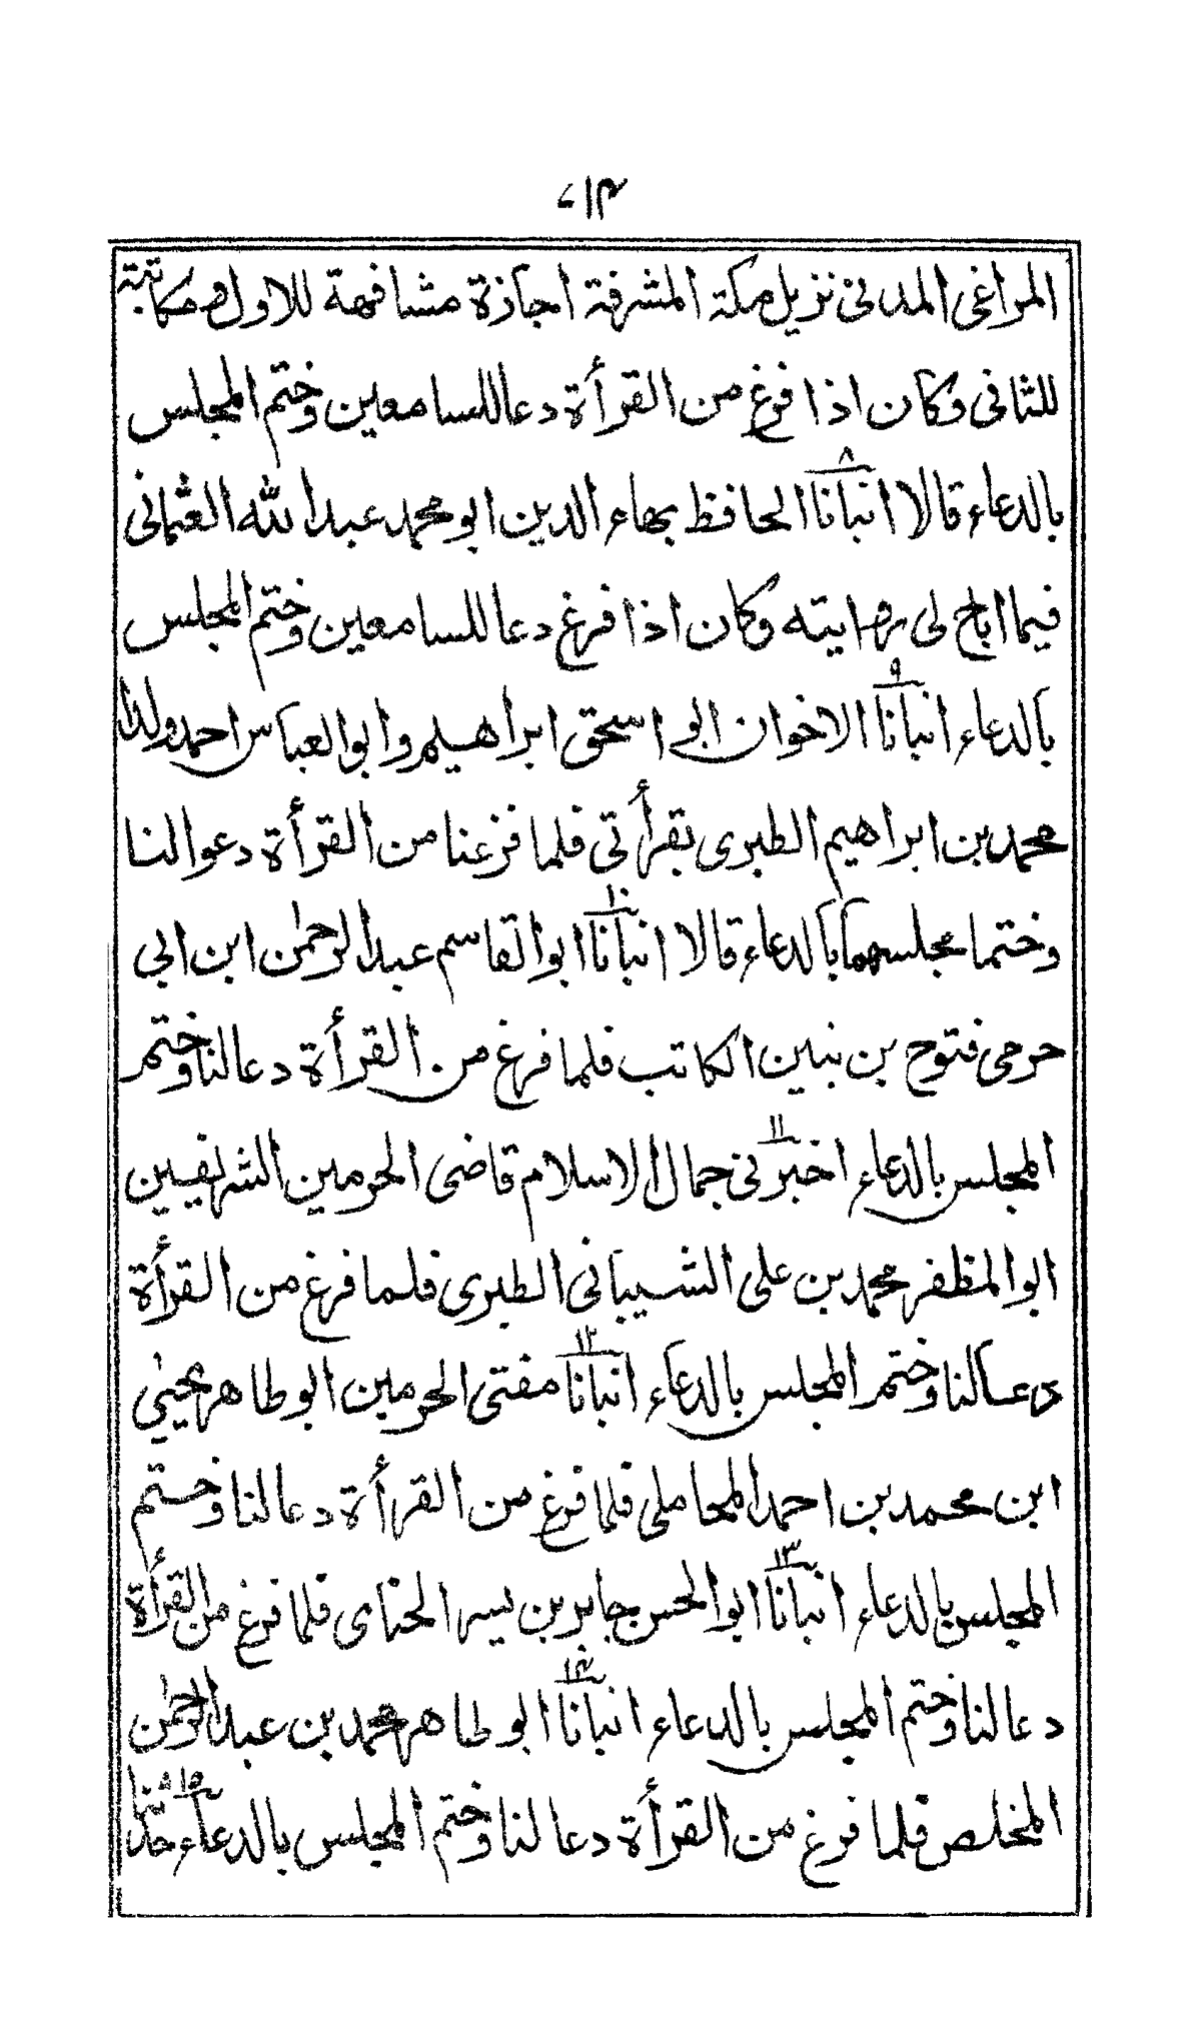 ۱۴
المراغى المدنى نزيل مكة المشرفة اجازة مشافهة للاول ومكاتبة
للثانى وكان اذا فرغ من القرأة دعا للسامعين وختم المجلس
بالدعاء قالا انبانا ٨ الحافظ بهاء الدين ابو محمد عبد الله العثمانى
فيما اباح لى روايته وكان اذا فرغ دعا للسامعين وختم المجلس
بالدعاء انبانا ٩ الاخوان ابو اسحق ابراهيم وابو العباس احمد ولدا
محمد بن ابراهيم الطبرى بقرأتى فلما فرغنا من القرأة دعوا لنا
وختما مجلسهما بالدعاء قالا انبانا ١٠ ابو القاسم عبد الرحمن ابن ابى
حرمى فتوح بن بنين الكاتب فلما فرغ من القرأة دعا لنا وختم
المجلس بالدعاء اخبرنى ١١ جمال الاسلام قاضى الحرمين الشريفين
ابو المظفر محمد بن على الشيبانى الطبرى فلما فرغ من القرأة
دعا لنا وختم المجلس بالدعاء انبانا ١٢ مفتى الحرمين ابو طاهر يحيى
ابن محمد بن احمد المحاملى فلما فرغ من القرأة دعا لنا وختم
المجلس بالدعاء انبانا ١٣ ابو الحسن جابر بن يسر الحناى فلما فرغ من القرأة
دعا لنا وختم المجلس بالدعاء انبانا ۱۴ ابو طاهر محمد بن عبد الرحمن
المخلص فلما فرغ من القرأة دعا لنا وختم المجلس بالدعاء حدثنا ١٥